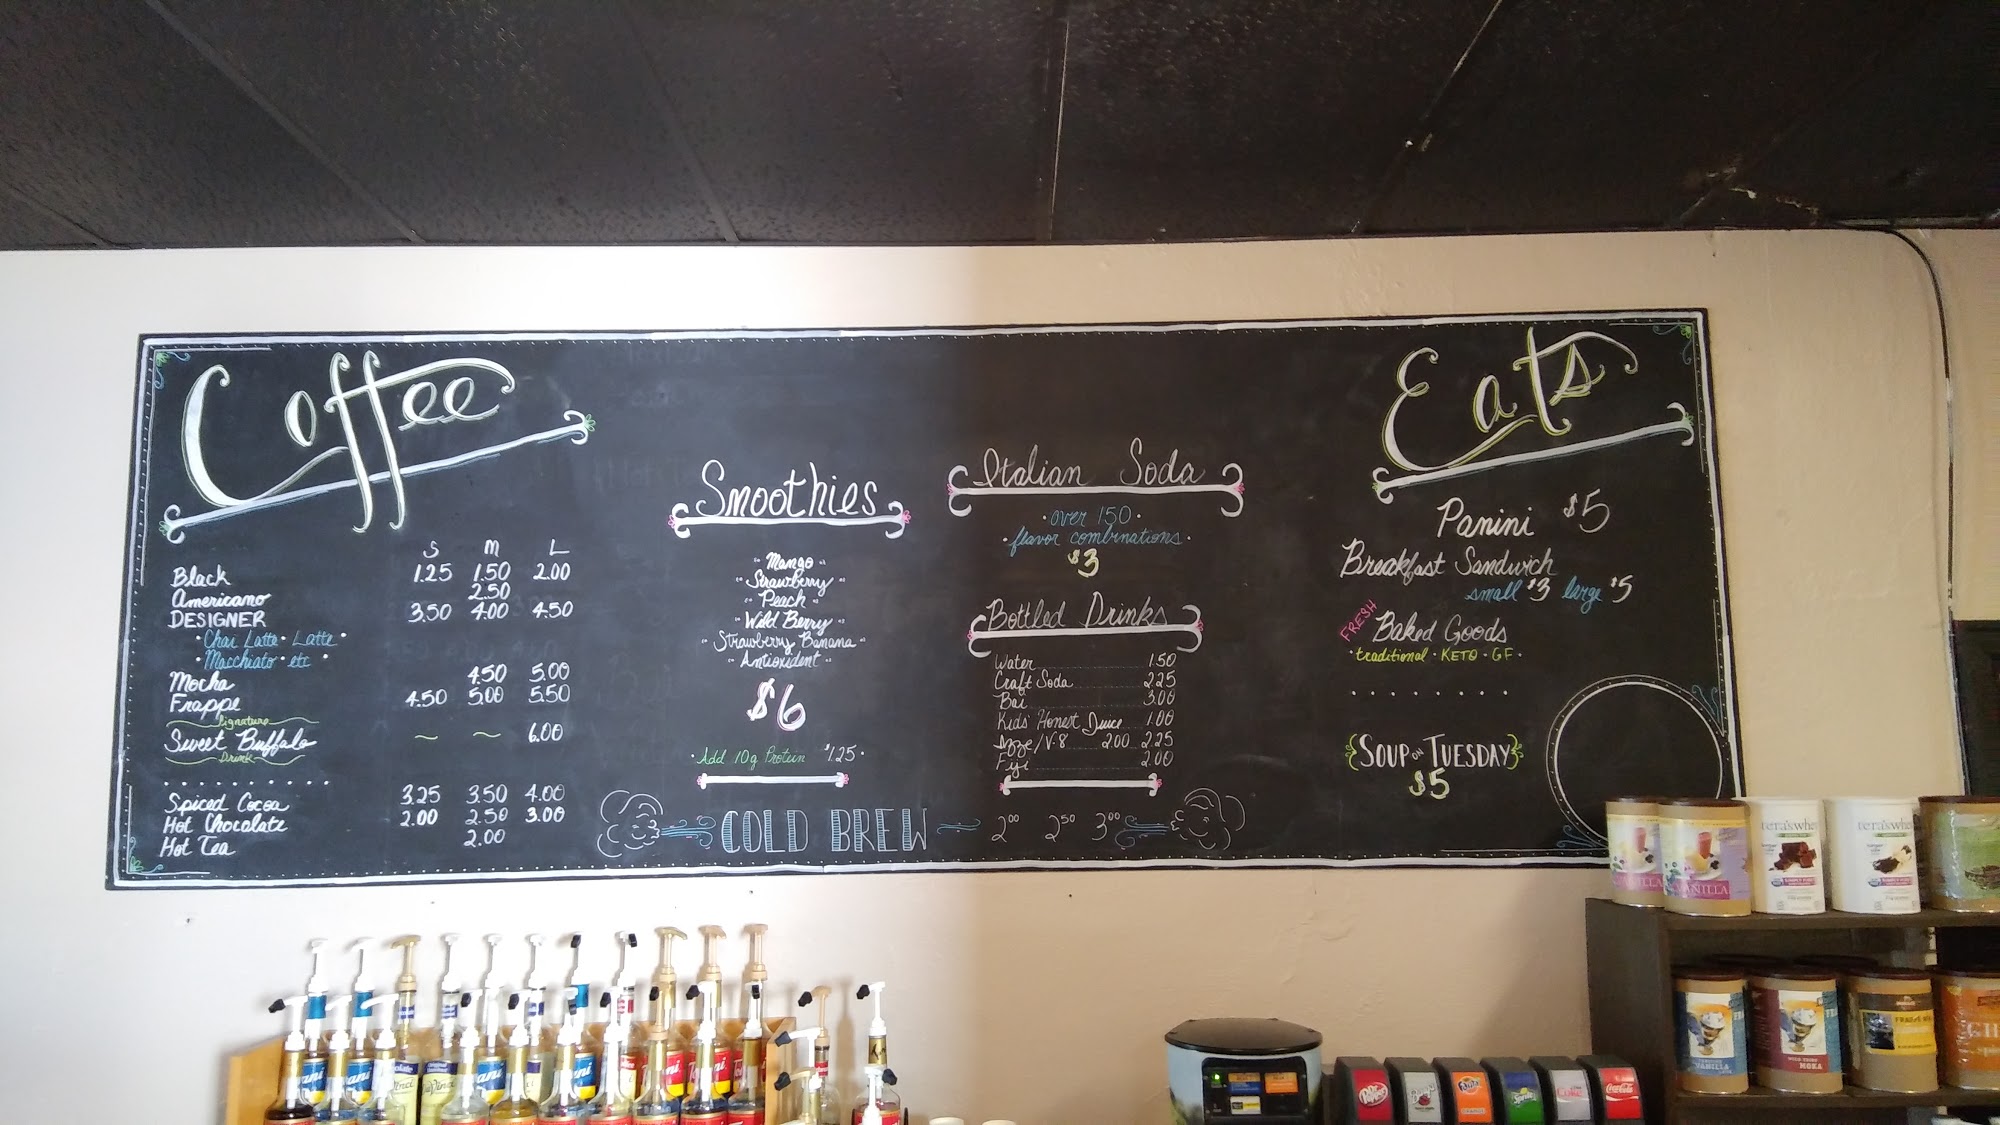 Coffee
S M L
Black 1.25 1.50 2.00
Americano 2.50
DESIGNER 3.50 4.00 4.50
• Chai Latte • Latte •
• Macchiato • etc •
Mocha 4.50 5.00
Frappe 4.50 5.00 5.50
Signature
Sweet Buffalo ~ ~ 6.00
Drink
Spiced Cocoa 3.25 3.50 4.00
Hot Chocalate 2.00 2.50 3.00
Hot Tea 2.00
Smoothies
Mango
Strawberry
Peach
Wild Berry
Strawberry Banana
Antioxident
$6
• Add 10g Protein $1.25 •
COLD BREW 2.00 2.50 3.00
Italian Soda
• over 150 •
• flavor combinations •
$3
Bottled Drinks
Water 1.50
Craft Soda 2.25
Bai 3.00
Kids' Honest Juice 1.00
Izze/V-8 2.00 2.25
Fiji 2.00
Eats
Panini $5
Breakfast Sandwich
small $3 large $5
FRESH
Baked Goods
• traditional • KETO • GF •
{SOUP ON TUESDAY}
$5
tera's whey
VANILLA
VANILLA
MOKA
Torani
DaVinci
Dr Pepper
Fanta
Sprite
Coke
Coca-Cola